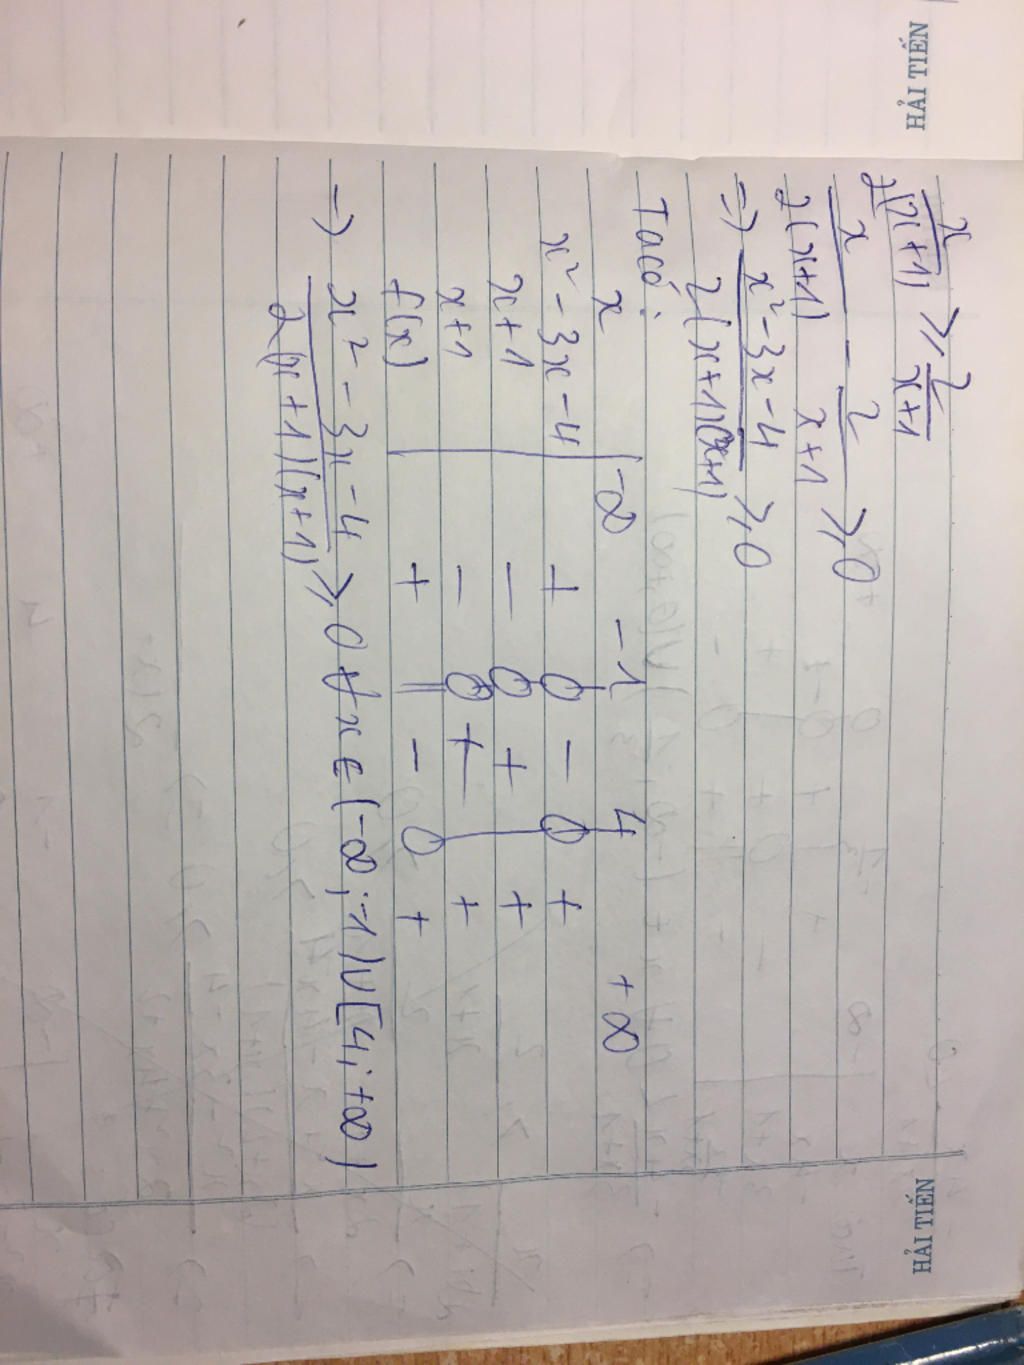 HẢI TIẾN
HẢI TIẾN
x/2(x+1) ≥ 2/x+1
x/2(x+1) - 2/x+1 ≥ 0
=> x² - 3x - 4/2(x+1)(x+1) ≥ 0
Ta có:
x -∞ -1 4 +∞
x² - 3x - 4 + 0 - 0 +
x+1 - 0 + +
x+1 - 0 + +
f(x) + || - 0 +
=> x² - 3x - 4/2(x+1)(x+1) ≥ 0 ∀x ∈ (-∞; -1) ∪ [4; +∞)